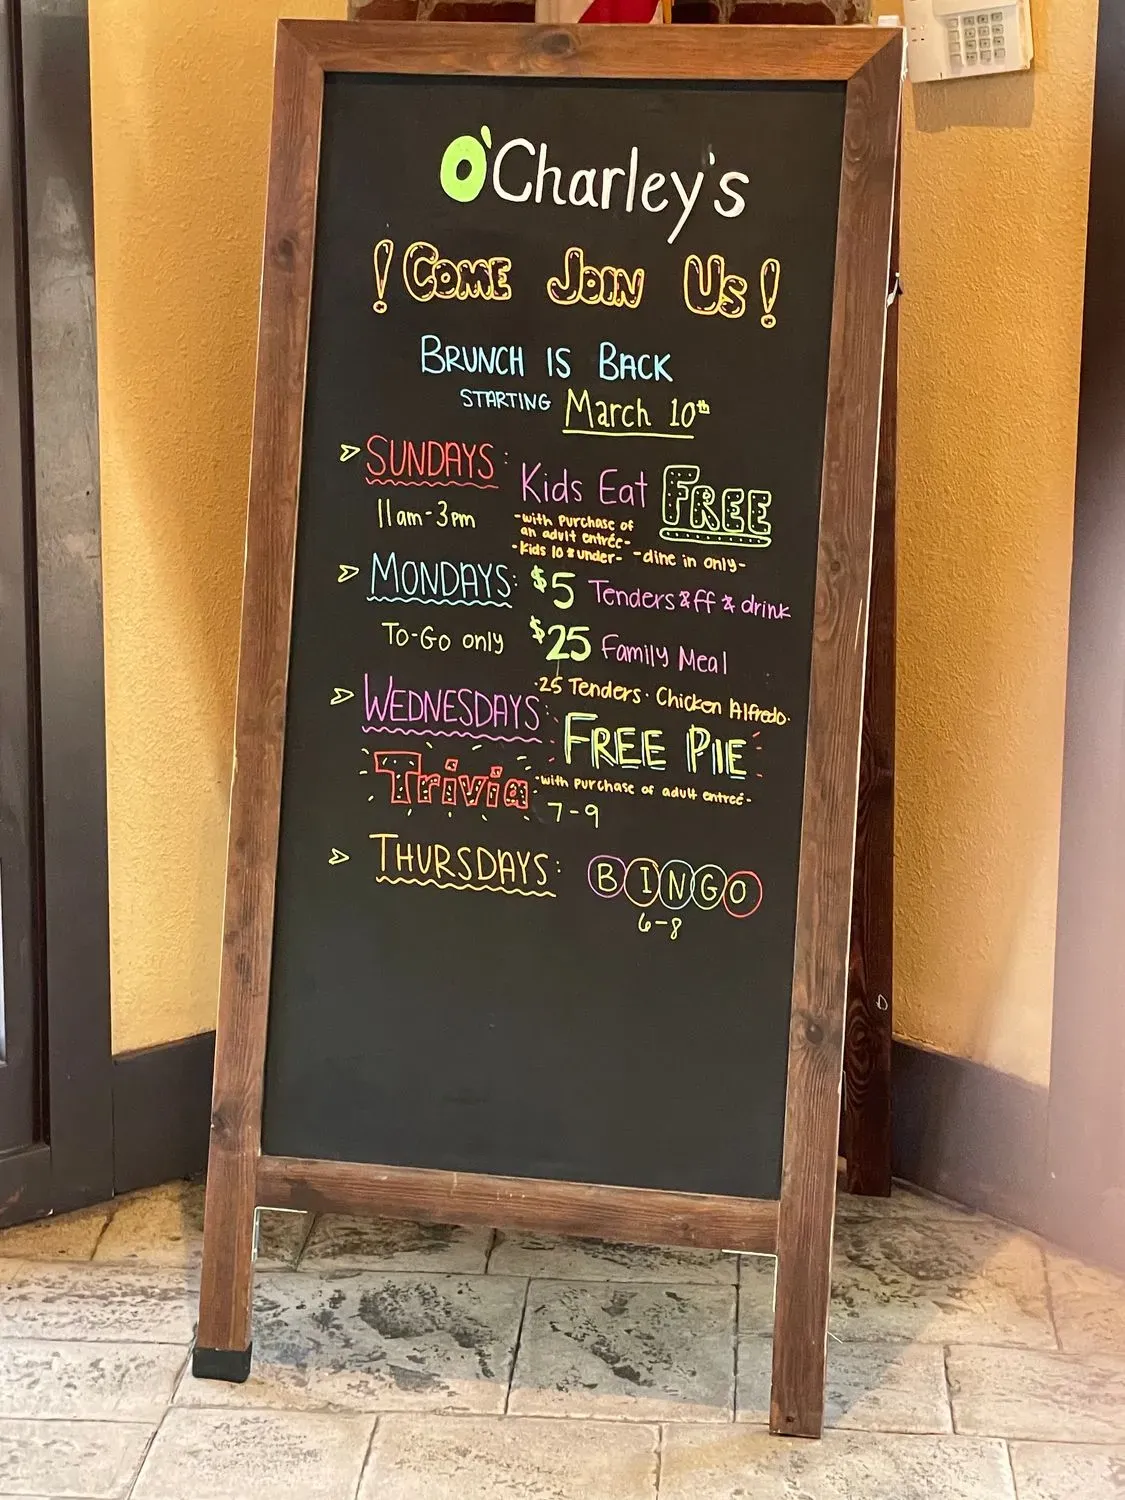 O'Charley's
!Come Join Us!
BRUNCH IS BACK
STARTING March 10th
SUNDAYS: Kids Eat FREE
11am-3pm
-with purchase of
an adult entrée-
-Kids 10 & under- -dine in only-
MONDAYS: $5 Tenders & ff & drink
To-Go only $25 Family Meal
·25 Tenders· Chicken Alfredo·
WEDNESDAYS: FREE PIE
Trivia -with purchase of adult entreé-
7-9
THURSDAYS: BINGO
6-8